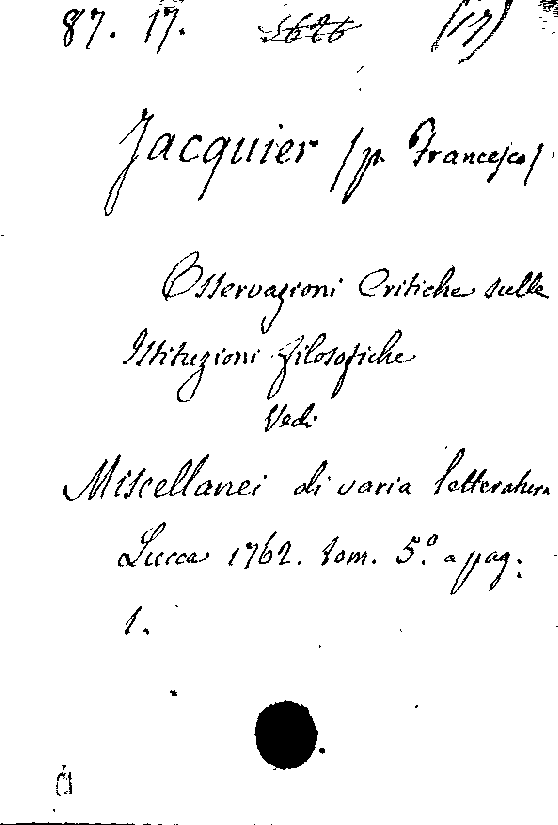 87. 17. 5626 (17)
Jacquier /p. Francesco/
Osservazioni Critiche sulle
Istituzioni filosofiche
Vedi
Miscellanei di varia letteratura
Lucca 1762. tom. 5.º a pag.
1.